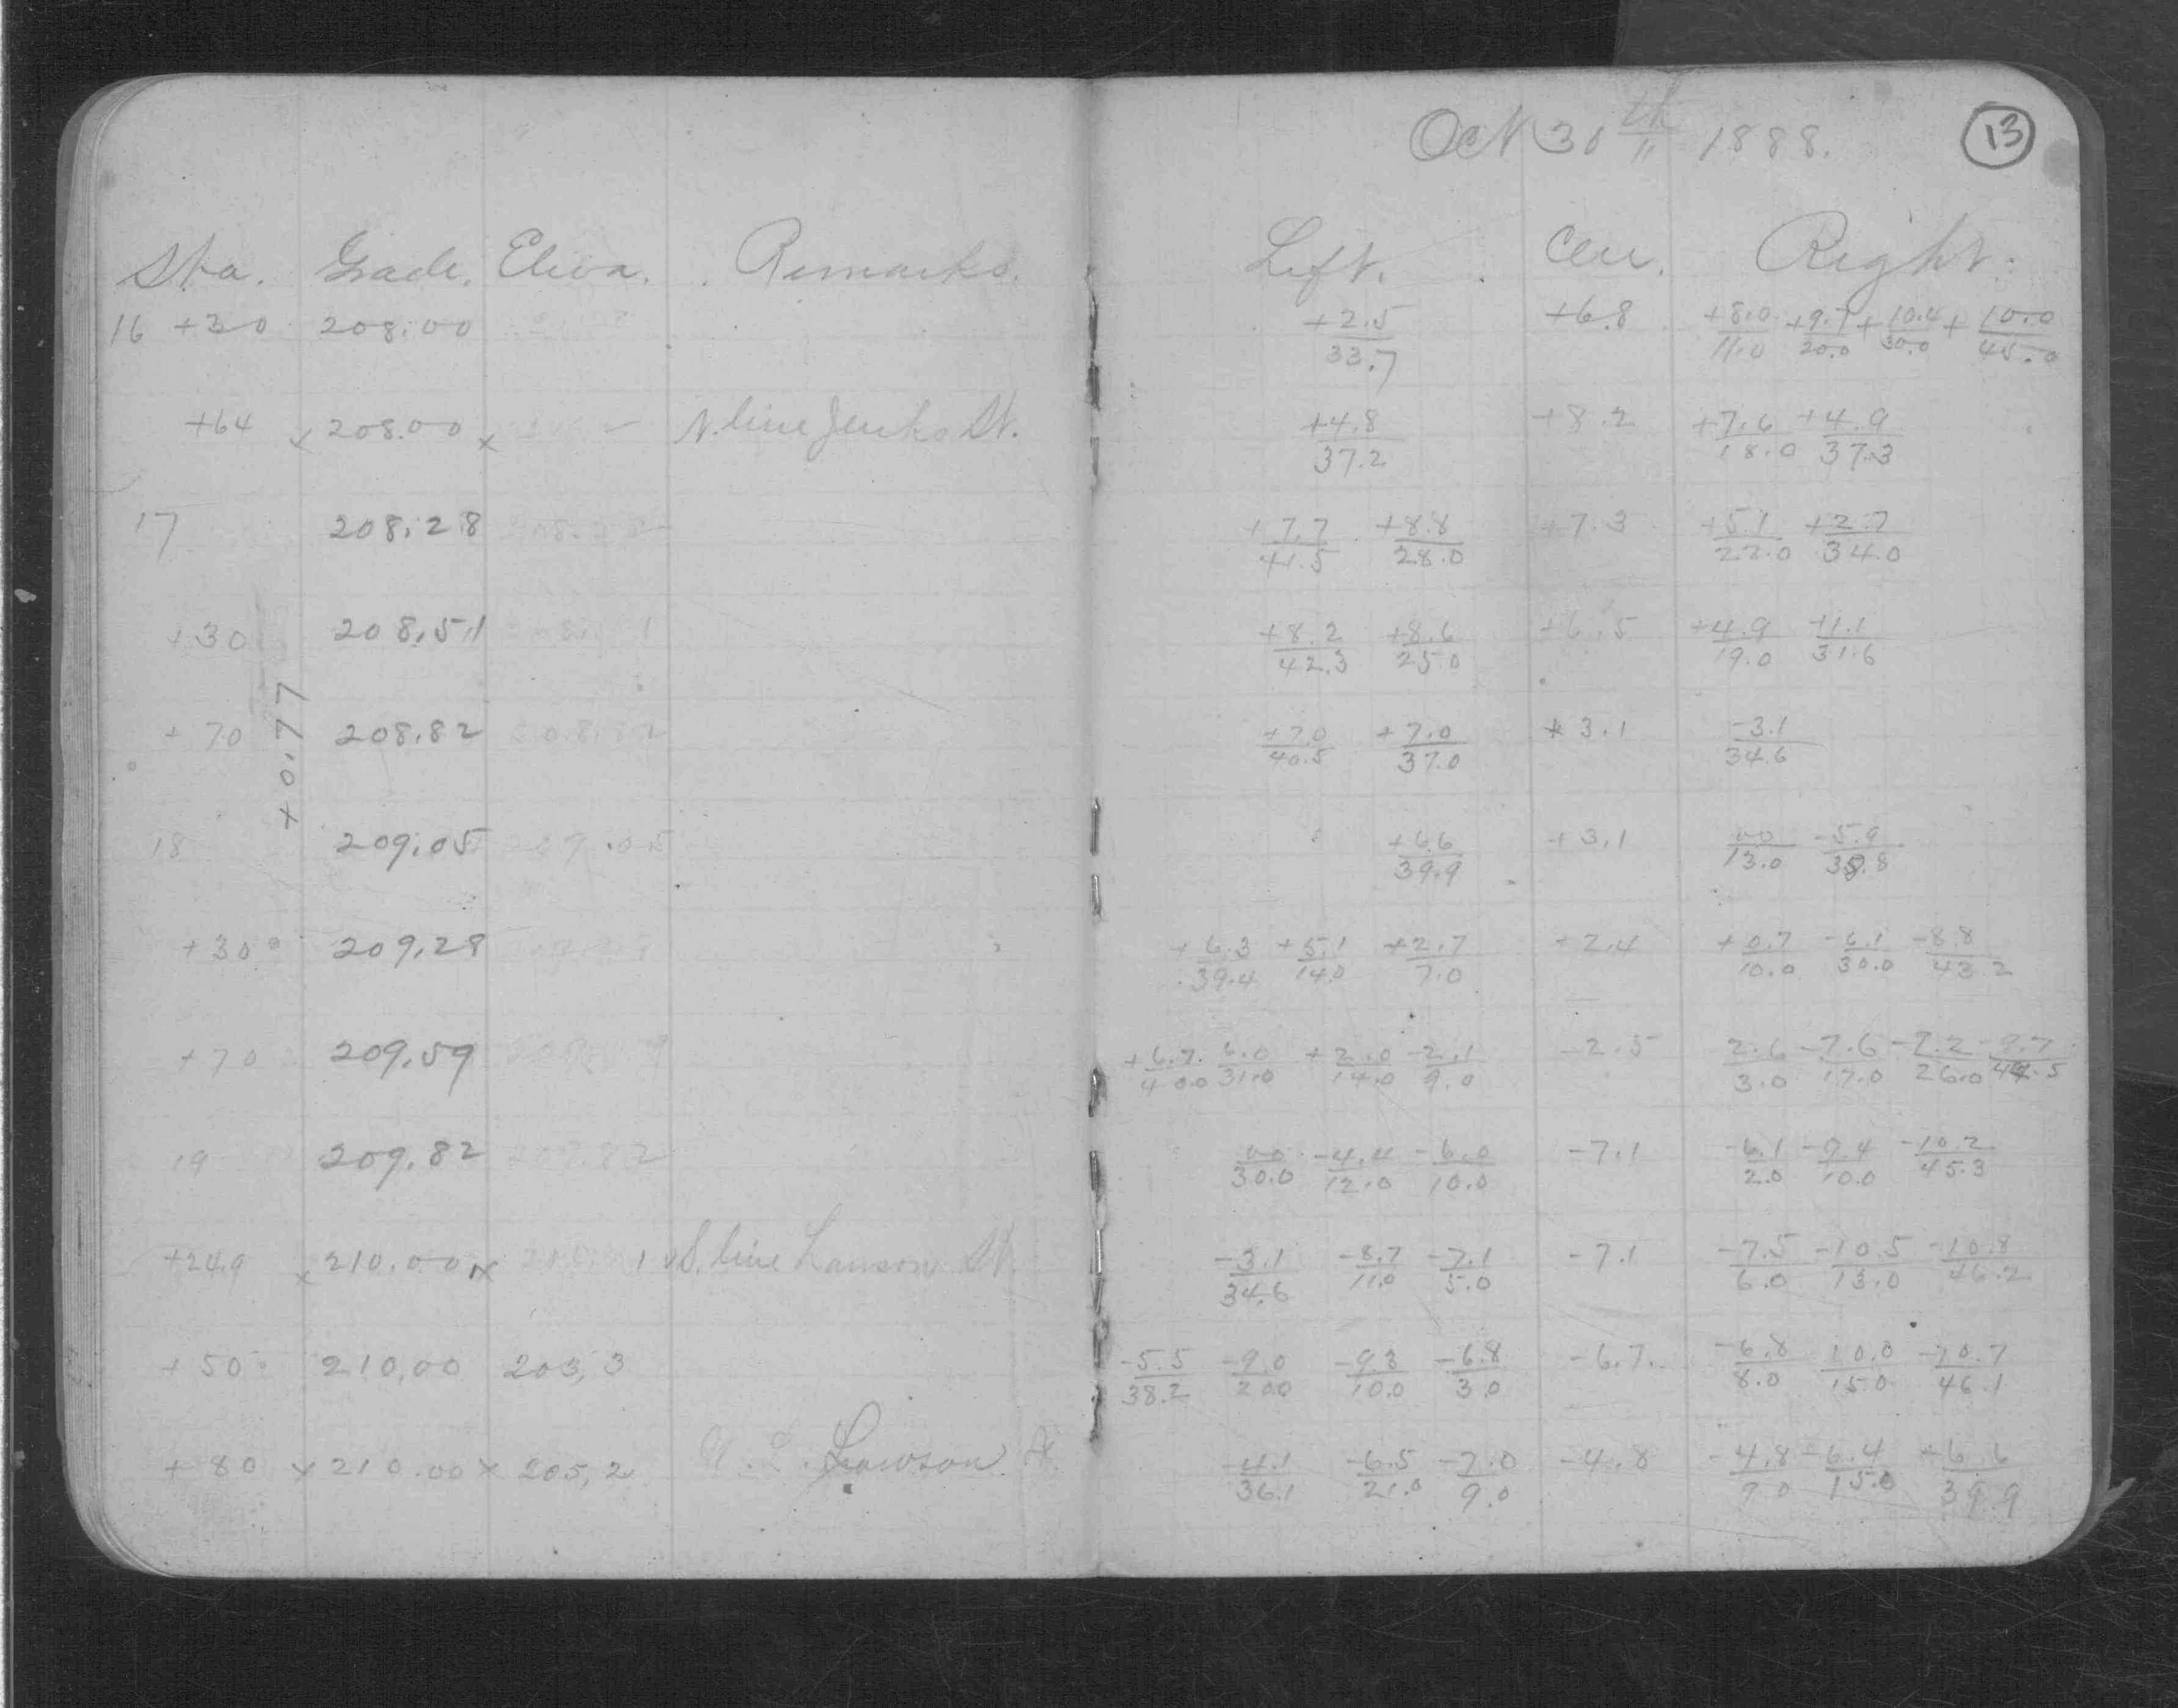 Oct 30th 1888. 13
Sta. Grade. Eleva. Remarks. Left. Cen. Right.
16 +30 208.00 +2.5/33.7 +6.8 +8.0/11.0 +9.7/20.0 +10.4/30.0 +10.0/45.0
+64 x 208.00 x N. line Jenks St. +4.8/37.2 +8.2 +7.6/18.0 +4.9/37.3
17 208.28 208.28 +7.7/41.5 +8.8/28.0 +7.3 +5.1/22.0 +2.7/34.0
+30 208.51 208.51 +8.2/42.3 +8.6/25.0 +6.5 +4.9/19.0 +1.1/31.6
+70 208.82 208.82 +7.0/40.5 +7.0/37.0 +3.1 -3.1/34.6
+0.77
18 209.05 209.05 +6.6/39.9 +3.1 00/13.0 -5.9/38.8
+30 209.28 +6.3/39.4 +5.1/14.0 +2.7/7.0 +2.4 +0.7/10.0 -6.1/30.0 -8.8/43.2
+70 209.59 +6.7/40.0 6.0/31.0 +2.0/14.0 -2.1/9.0 -2.5 2.6/3.0 -7.6/17.0 -7.2/26.0 -9.7/44.5
19 209.82 209.82 00/30.0 -4.4/12.0 -6.0/10.0 -7.1 -6.1/2.0 -9.4/10.0 -10.2/45.3
+24.9 x 210.00 x S. line Lawson St. -3.1/34.6 -8.7/11.0 -7.1/5.0 -7.1 -7.5/6.0 -10.5/13.0 -10.8/46.2
+50 210.00 203.3 -5.5/38.2 -9.0/20.0 -9.3/10.0 -6.8/3.0 -6.7 -6.8/8.0 10.0/15.0 -10.7/46.1
+80 x 210.00 x 205.2 N. L. Lawson St. -4.1/36.1 -6.5/21.0 -7.0/9.0 -4.8 -4.8/9.0 -6.4/15.0 -6.6/39.9